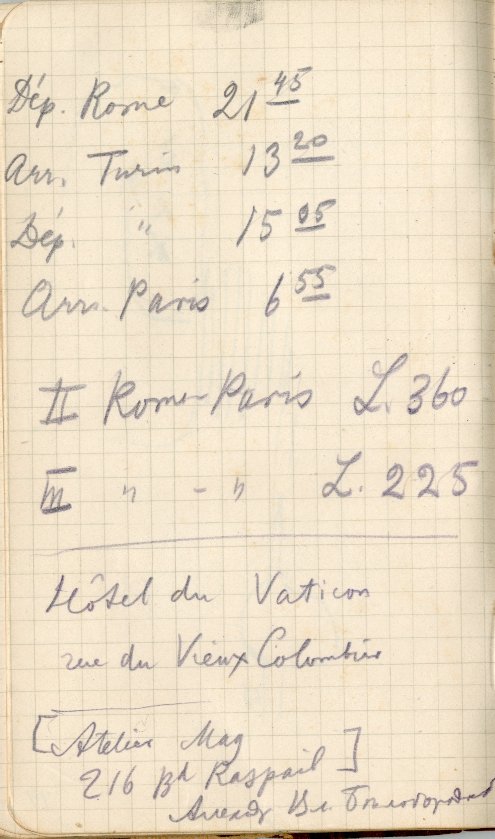 Dép. Rome 21 45
Arr. Turin 13 20
Dép. " 15 05
Arr. Paris 6 55
II Rome-Paris L. 360
III " - " L. 225
Hôtel du Vatican
rue du Vieux Colombier
[Atelier Mag
216 Bd Raspail]
Ал. Вл.